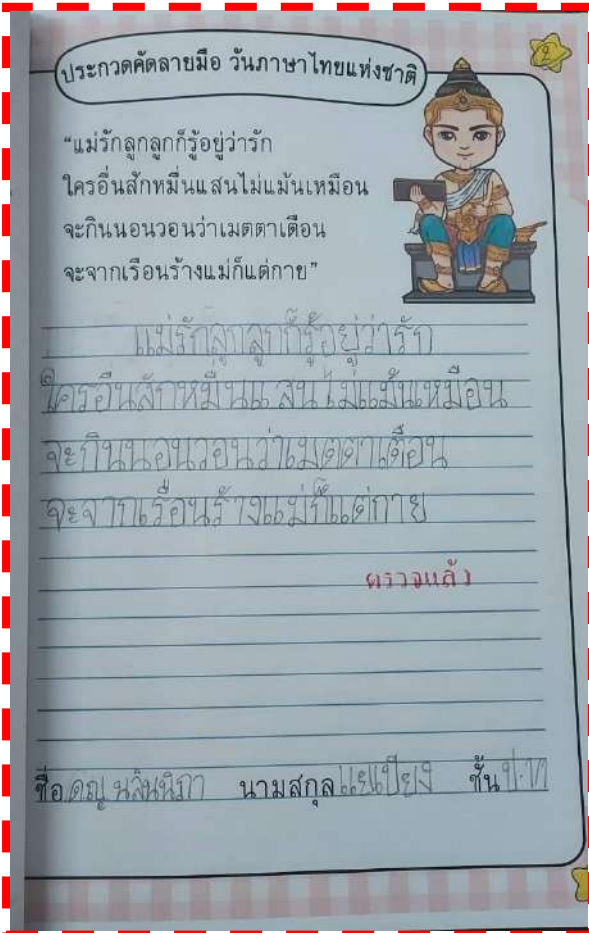 2
ประกวดคัดลายมือ วันภาษาไทยแห่งชาติ
“แม่รักลูกลูกก็รู้อยู่ว่ารัก
ใครอื่นสักหมื่นแสนไม่แม้นเหมือน
จะกินนอนวอนว่าเมตตาเตือน
จะจากเรือนร้างแม่ก็แต่กาย”
แม่รักลูกลูกก็รู้อยู่ว่ารัก
ใครอื่นสักหมื่นแสนไม่แม้นเหมือน
จะกินนอนวอนว่าเมตตาเตือน
จะจากเรือนร้างแม่ก็แต่กาย
ตรวจแล้ว
ชื่อ ดญ นลินนิภา นามสกุล ชั้น